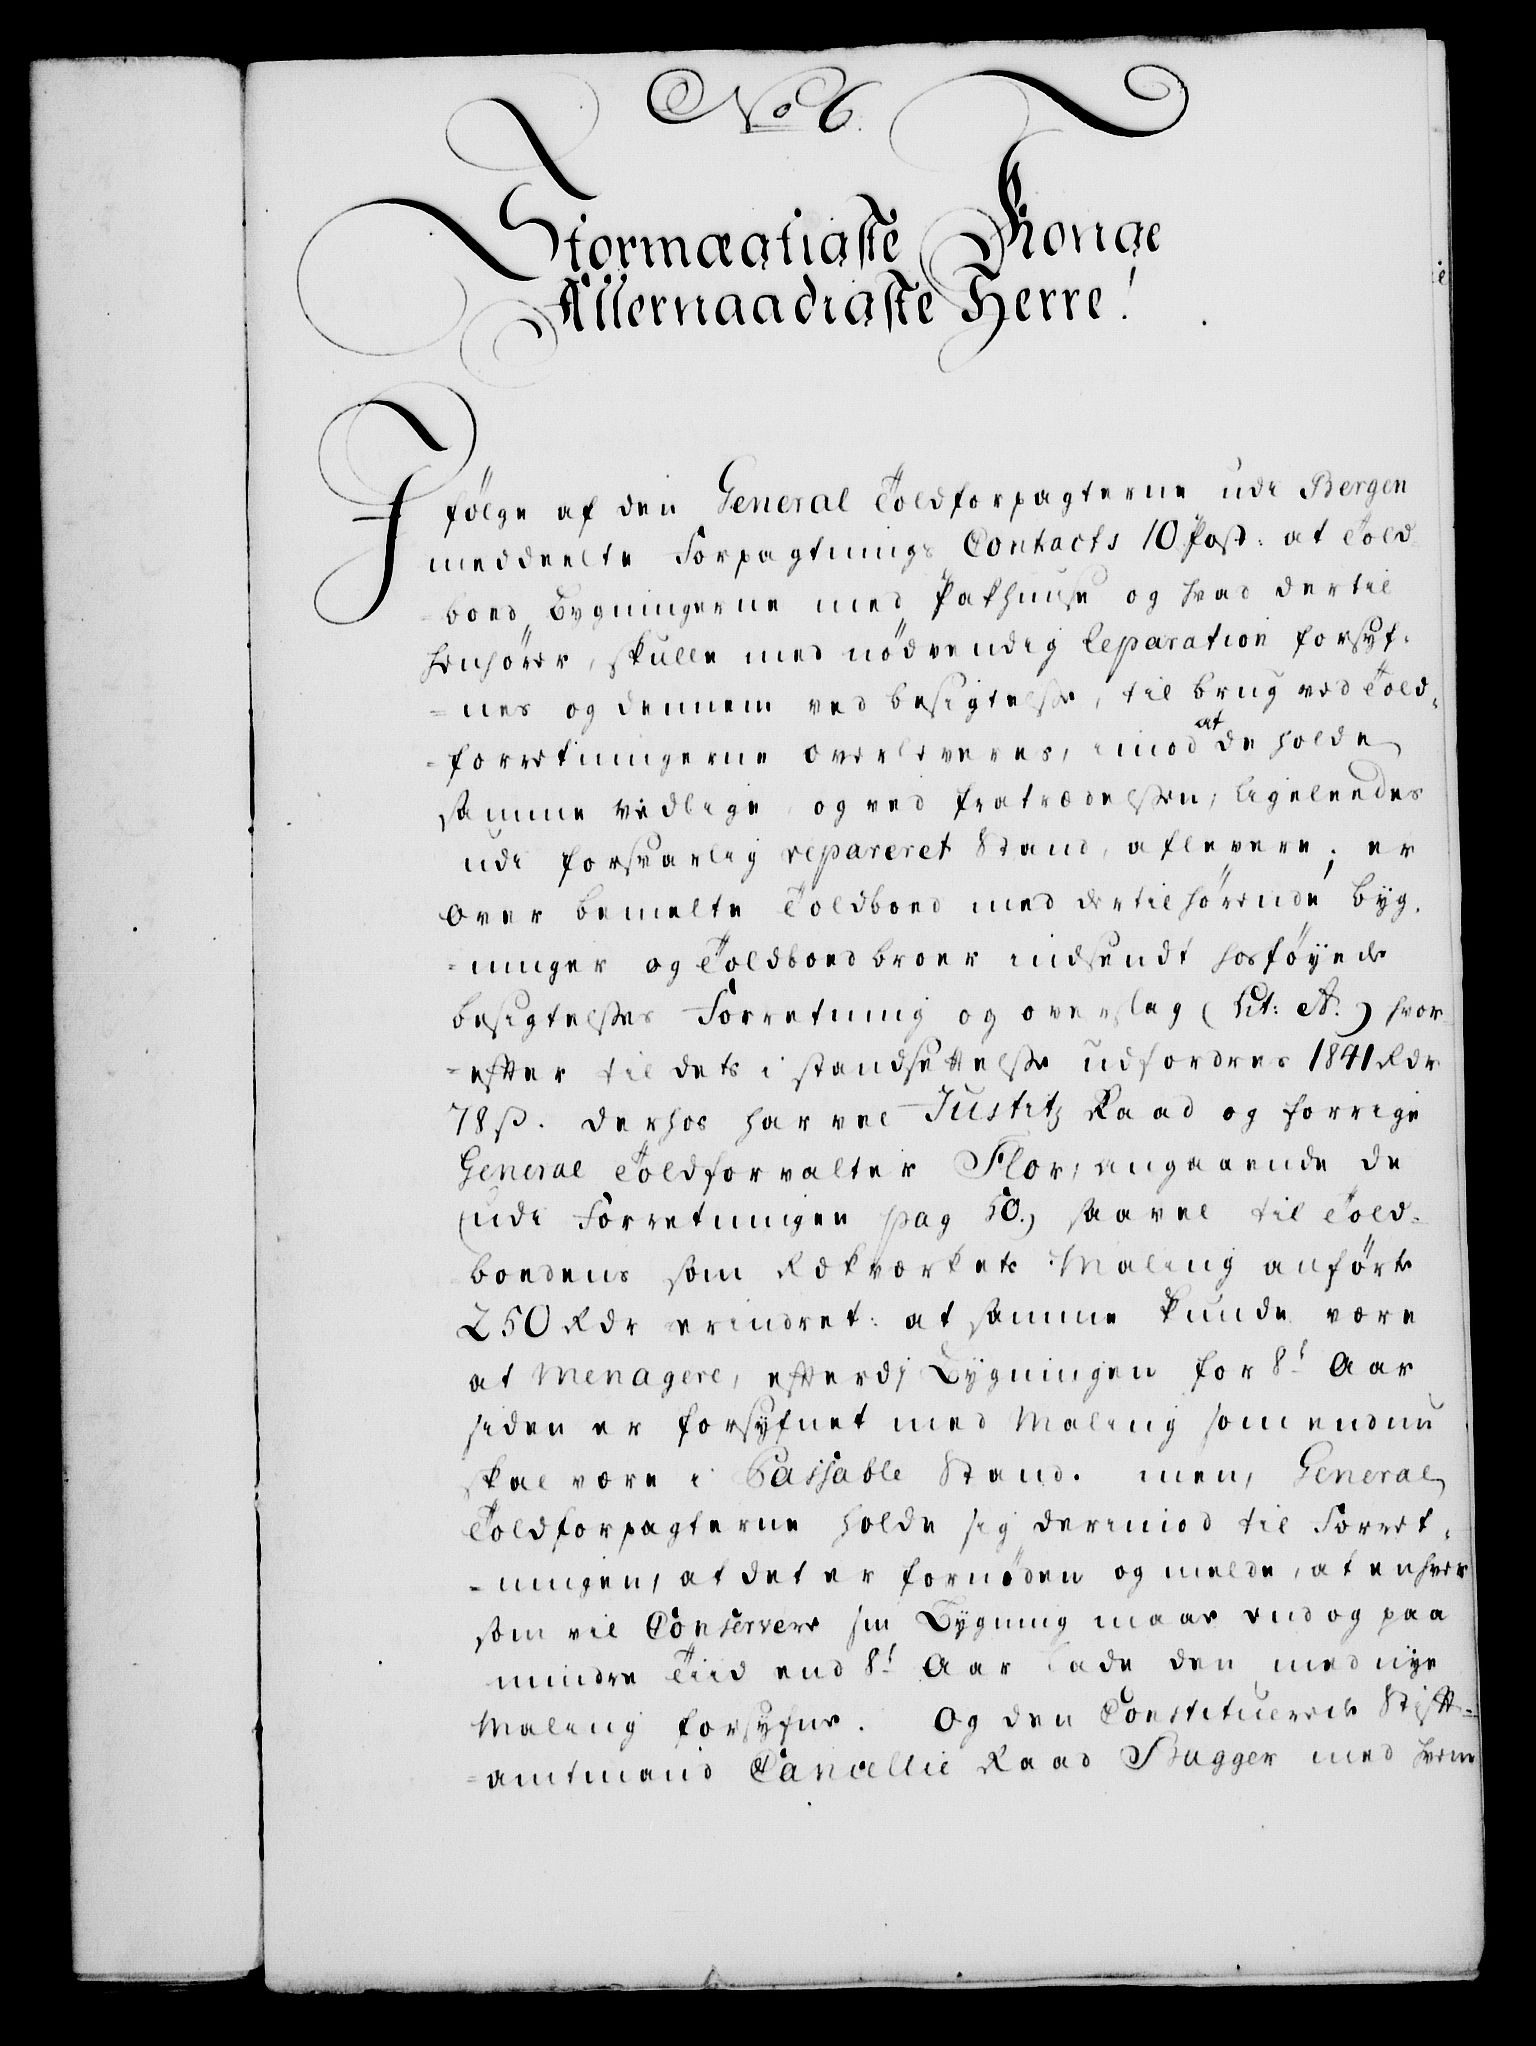 No 6.
Stormægtigste Konge
Allernaadigste Herre!
I følge af den General Toldforpagterne udi Bergen
meddeelte Forpagtnings Contracts 10 Post: at Told
boed Bygningerne med Pakhuuse og hvad dertil
henhörer, skulle med nödvendig Reparation forsyf-
=nes og dennem ved besigtelsse, til brug ved Told-
=forretningerne overleveres, imod at de holde
samme vedlige og ved fratrædelssen, ligeleedes
udi forsvarlig repareret Stand, aflevere; er
over bemelte Toldboed med dertil hörende byg-
=ninger og Toldboed broer indsendt hosföyede
besigtelsses Forretning og overslag (Lit: A.) hvor
=efter til dets i standsættelsse udfordres 1841 Rdr
78 ß. derhos har vel Justitz Raad og forrige
General Toldforvalter Flor, angaaende de
(udi Forretningen pag 50.) saavel til Told-
boedens som Rækværkets Maling anförte
250 Rdr erindret: at samme kunde være
at menagere, efterdj Bygningen for 8t Aar
siden er forsyfnet med Maling som endnu
skal være i Passable Stand. men, General
Toldforpagterne holde sig derimod til Forret-
=ningen, at det er fornöden og melde, at enhver
som vil Conservere sin Bygning maae endog paa
mindre Tiid end 8t Aar lade den med nye
Maling forsyfne. Og den Constituerede Stift-
=amtmand Cancellie Raad Bugger med hvem